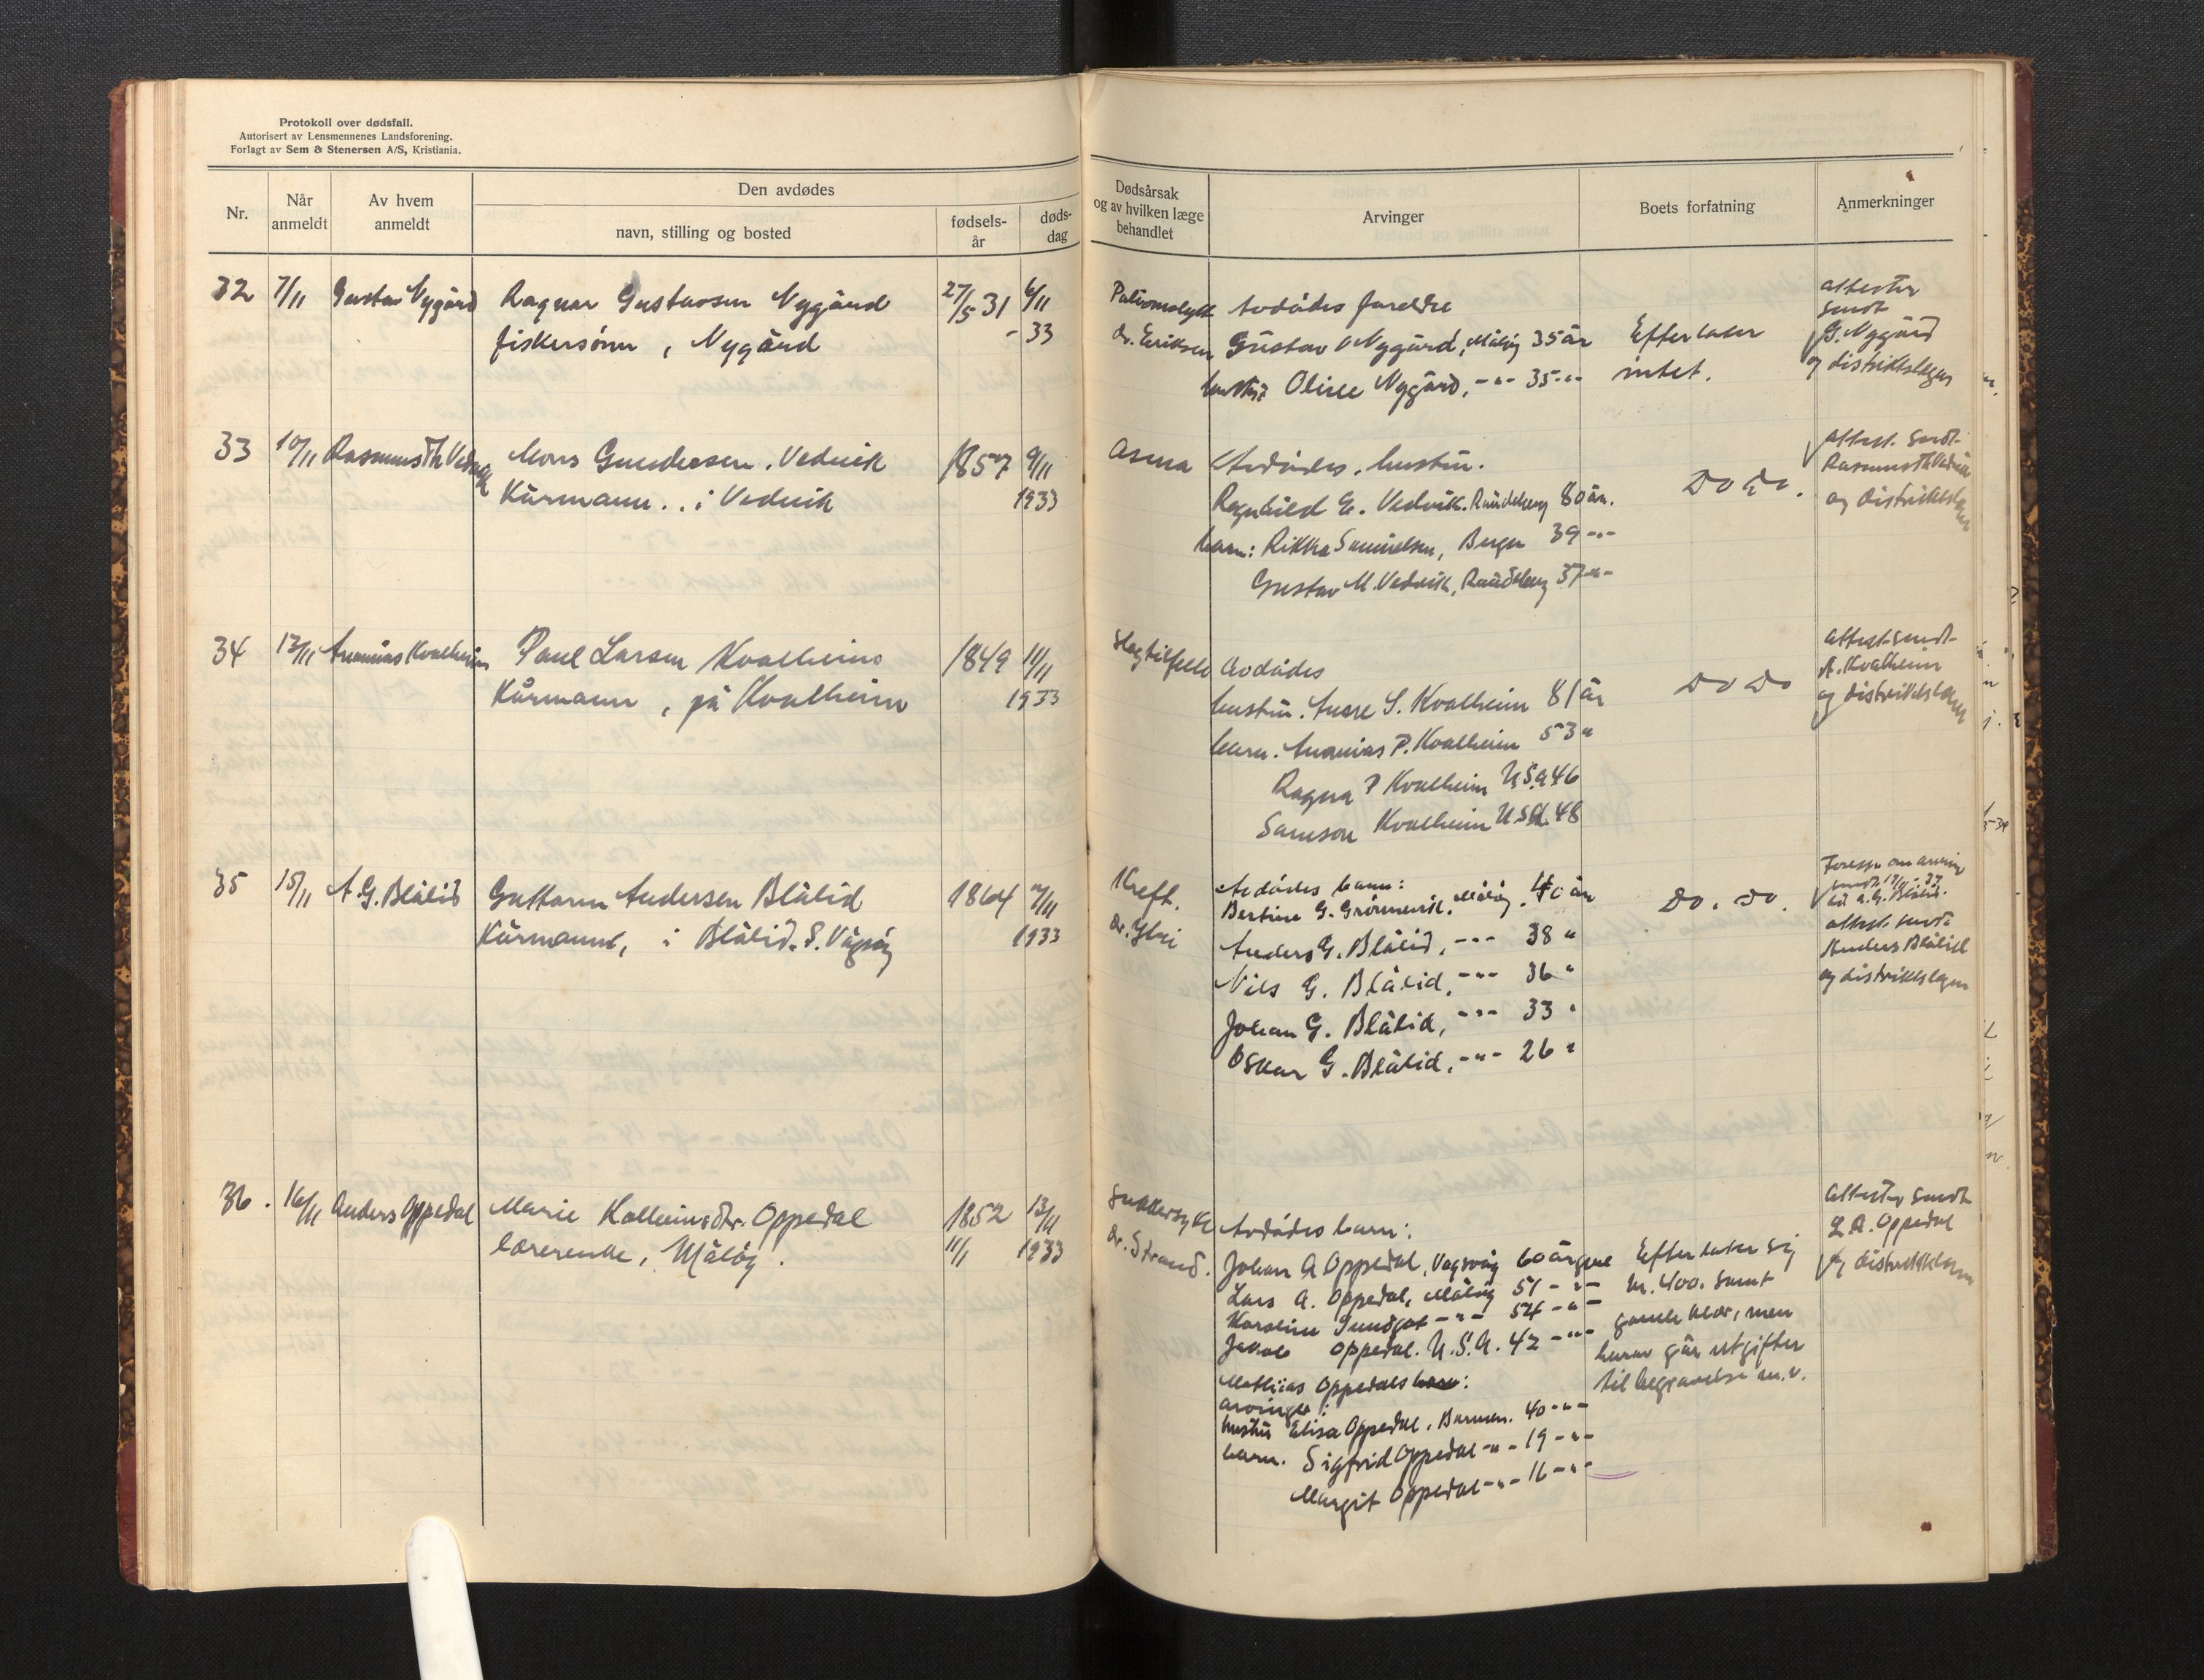 Protokoll over dødsfall.
Autorisert av Lensmennenes Landsforening.
Forlagt av Sem & Stenersen A/S, Kristiania.
Nr.
Når anmeldt
Av hvem anmeldt
Den avdødes
navn, stilling og bosted
fødsels-
år
døds-
dag
Dødsårsak
og av hvilken læge
behandlet
Arvinger
Boets forfatning
Anmerkninger
32 7/11 Gustav Nygård Ragnar Gustavsen Nygård 27/5 31 6/11
fiskersønn, Nygård - 33
dr. Eriksen
Avdødes foreldre
Gustav Nygård, Måløy 35 år
hustru Olise Nygård, -"- 35 -"-
Efterlater
intet.
attester
sendt
G. Nygård
og distriktslegen
33 10/11 Rasmus Th Vedvik Mons Gundersen Vedvik 1857 9/11
Kårmann .. i Vedvik 1933
Avdødes hustru.
Ragnhild E. Vedvik. Raudeberg 80 år.
barn: Rikka Samuelsen, Bergen 39 -"-
Gustav M. Vedvik, Raudeberg 37 -"-
Do Do.
attest. sendt
Rasmus Th Vedvik
og distriktslegen
34 13/11 Ananias Kvalheim Paul Larsen Kvalheim 1849 11/11
Kårmann, på Kvalheim 1933
Slagtilfelle
Avdødes
hustru. Anne S. Kvalheim 81 år
barn. Ananias P. Kvalheim 53 "
Ragna P Kvalheim U.S.A 46
Samson Kvalheim U.S.A. 48
Do Do
attest sendt
A. Kvalheim
og distriktslegen
35 15/11 A.G. Blålid Guttorm Andersen Blålid 1864
Kårmann, i Blålid. S. Vågsøy 1933
Kreft.
Avdødes barn:
Bertine G. Grønnevik, Måløy. 40 år
Anders G. Blålid, -"- 38 "
Nils G. Blålid, -"- 36 "
Johan G. Blålid, -"- 33 "
Oskar G. Blålid, -"- 26 "
Do. Do.
til A.G. Blålid.
attest. sendt
Anders Blålid
og distriktslegen
36. 16/11 Anders Oppedal Marie Kolbeinsdtr. Oppedal 1852 13/11
lærerenke, Måløy. 11/1 1933
Sukkersyke
dr. Strand.
Avdødes barn:
Johan A Oppedal, Vågsvåg 60 år gml
Lars A. Oppedal, Måløy 51 -"-
Karoline Sundgot -"- 54 -"-
Jakob Oppedal. U.S.A. 42 -"-
Mathias Oppedals barn:
arvinger:
hustru Elisa Oppedal, Barmen. 40 -"-
barn. Sigfrid Oppedal -"- 19 -"-
Margit Oppedal -"- 16 -"-
Efterlater sig
kr. 400. samt
gamle klær, men
herav går utgifter
til begravelse m.v.
attester sendt
L A. Oppedal
og distriktslegen